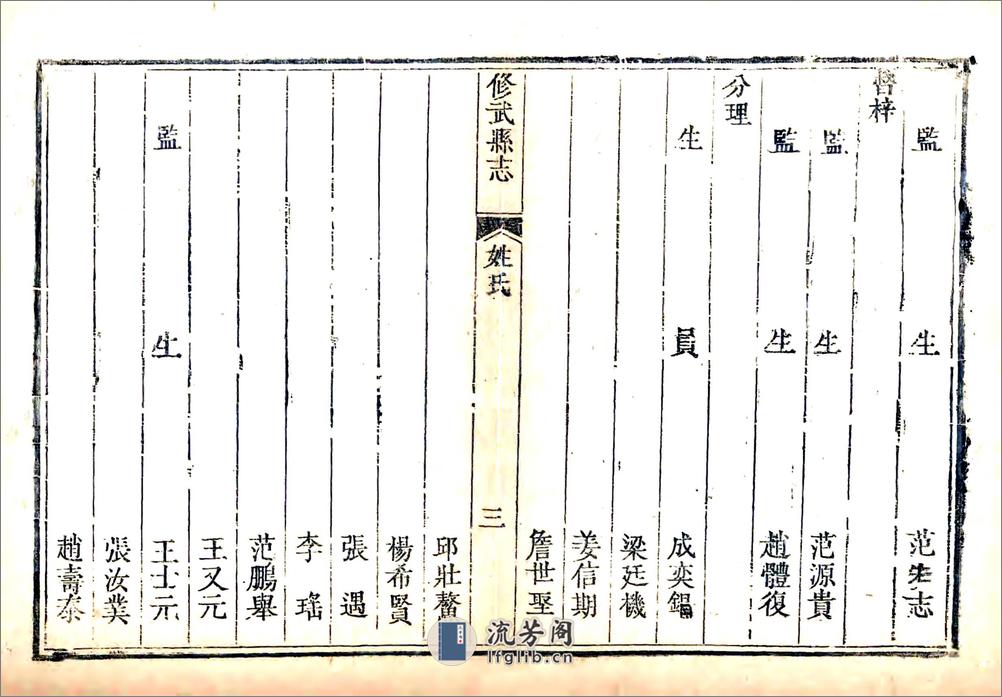 監生 范先志
督梓
監生 范源貴
監生 趙體復
分理
生員 成奕錫
梁廷機
姜信期
詹世聖
修武縣志 姓氏 三
邱壯鰲
楊希賢
張遇
李瑤
范鵬舉
王又元
監生 王士元
張汝業
趙壽泰
流芳阁
lfglib.cn